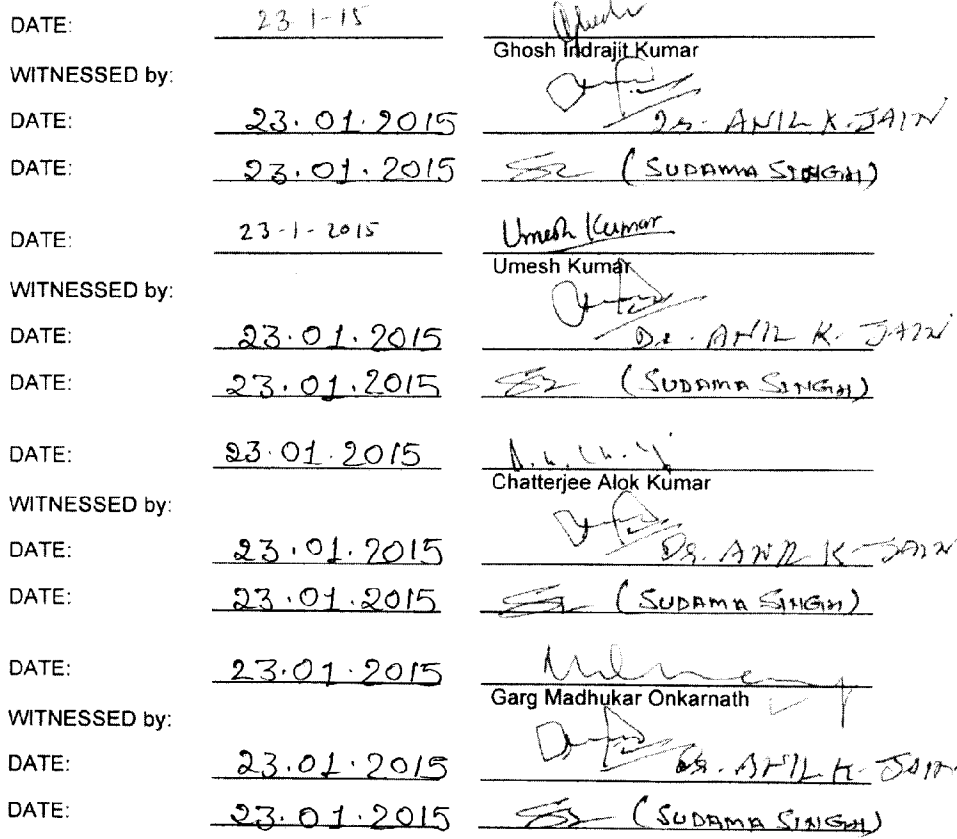 DATE: 23-1-15
Ghosh Indrajit Kumar
WITNESSED by:
DATE: 23.01.2015 Dr. ANIL K. JAIN
DATE: 23.01.2015 (SUDAMA SINGH)
DATE: 23-1-2015 Umesh Kumar
Umesh Kumar
WITNESSED by:
DATE: 23.01.2015 Dr. ANIL K. JAIN
DATE: 23.01.2015 (SUDAMA SINGH)
DATE: 23.01.2015
Chatterjee Alok Kumar
WITNESSED by:
DATE: 23.01.2015 Dr. ANIL K. JAIN
DATE: 23.01.2015 (SUDAMA SINGH)
DATE: 23.01.2015
Garg Madhukar Onkarnath
WITNESSED by:
DATE: 23.01.2015 Dr. ANIL K. JAIN
DATE: 23.01.2015 (SUDAMA SINGH)